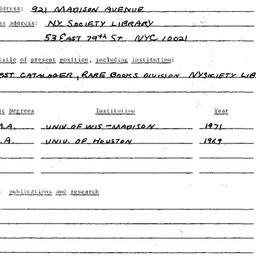 dress: 921 MADISON AVENUE
ss address: N.Y. SOCIETY LIBRARY
53 EAST 79th St. NYC 10021
title of present position, including institution:
CATALOGER, RARE BOOKS DIVISION NYSOCIETY LIB
ic Degrees Institution Year
.A. UNIV. OF WIS.-MADISON 1971
.A. UNIV. OF HOUSTON 1969
publications and research